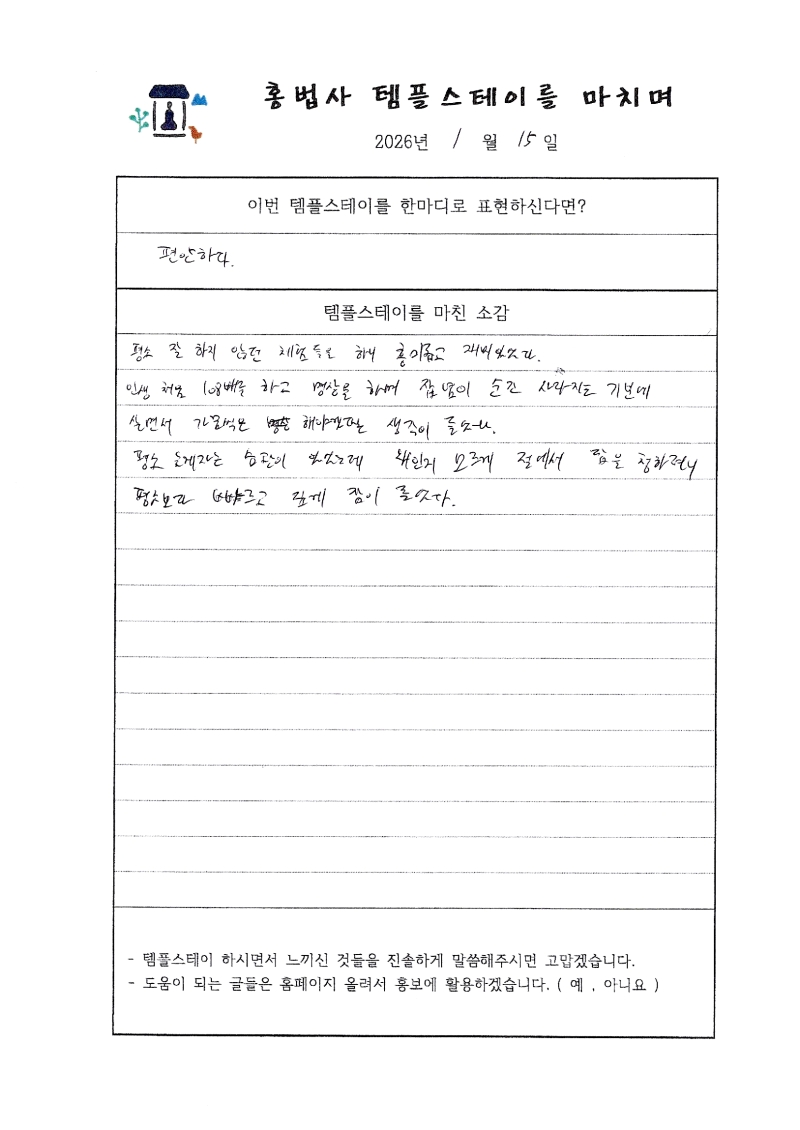 홍법사 템플스테이를 마치며
2026년 1 월 15 일
이번 템플스테이를 한마디로 표현하신다면?
편안하다.
템플스테이를 마친 소감
평소 잘 하지 않던 체험들로 하니 흥미롭고 재미있었다.
인생 처음 108배를 하고 명상을 하며 잡념이 순간 사라지는 기분에
살면서 가끔씩은 해야겠다는 생각이 들었다.
평소 늦게자는 습관이 있었는데 왜인지 모르게 절에서 잠을 청하려니
평소보다 빠르고 깊게 잠이 들었다.
- 템플스테이 하시면서 느끼신 것들을 진솔하게 말씀해주시면 고맙겠습니다.
- 도움이 되는 글들은 홈페이지 올려서 홍보에 활용하겠습니다. ( 예 , 아니요 )